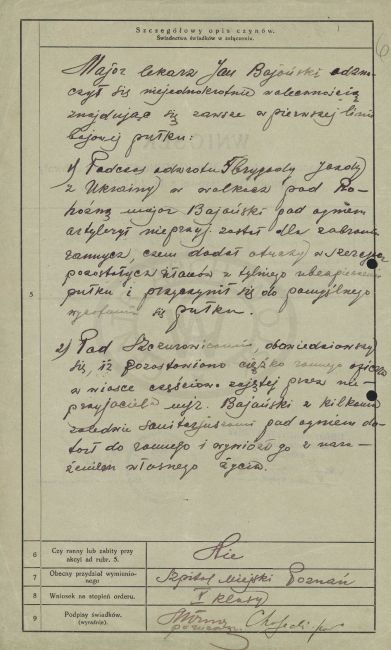 Szczegółowy opis czynów.
Świadectwa świadków w załączeniu.
6
Major lekarz Jan Bajoński odzna-
czył się niejednokrotnie walecznością
znajdując się zawsze w pierwszej linii
bojowej pułku:
1) Podczas odwrotu Brygady Jazdy
z Ukrainy w walkach pod
major Bajoński pod ogniem
artylerji nieprzyj. został dla zabrania
rannych, czem dodał otuchy w szeregach
pozostałych z tylnego ubezpieczenia
pułku i przyczynił się do pomyślnego
wycofania się pułku.
5
2) Pod Szczurowicami, dowiedziawszy
się, iż pozostawiono ciężko rannego
w wiosce częściowo zajętej przez nie-
przyjaciela mjr. Bajoński z kilkoma
zaledwie sanitarjuszami pod ogniem do-
tarł do rannego i wyniósł go z nara-
żeniem własnego życia.
6 Czy ranny lub zabity przy akcji ad rubr. 5. Nie
7 Obecny przydział wymienionego Szpital Miejski Poznań
8 Wniosek na stopień orderu. V klasy
9 Podpisy świadków. (wyraźnie).